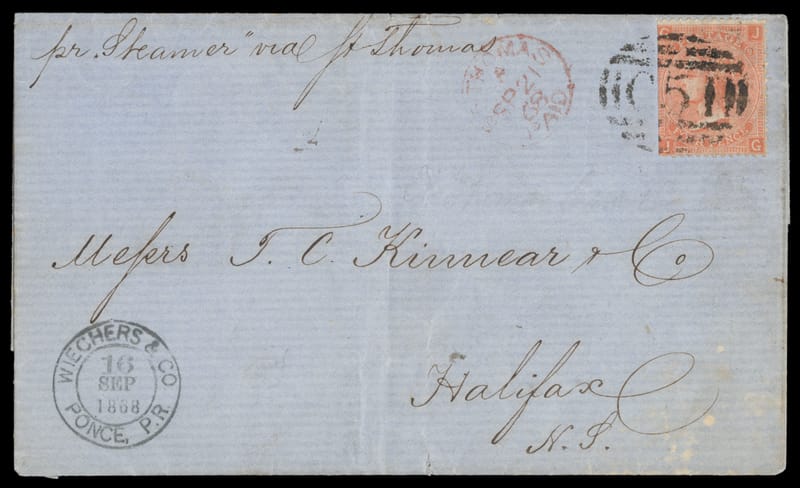 pr. Steamer via St Thomas
THOMAS
SP 21
68
PAID
C51
J
J G
Messrs T. C. Kinnear & Co
WIECHERS & CO
16
SEP
1868
PONCE, P.R.
Halifax
N.S.